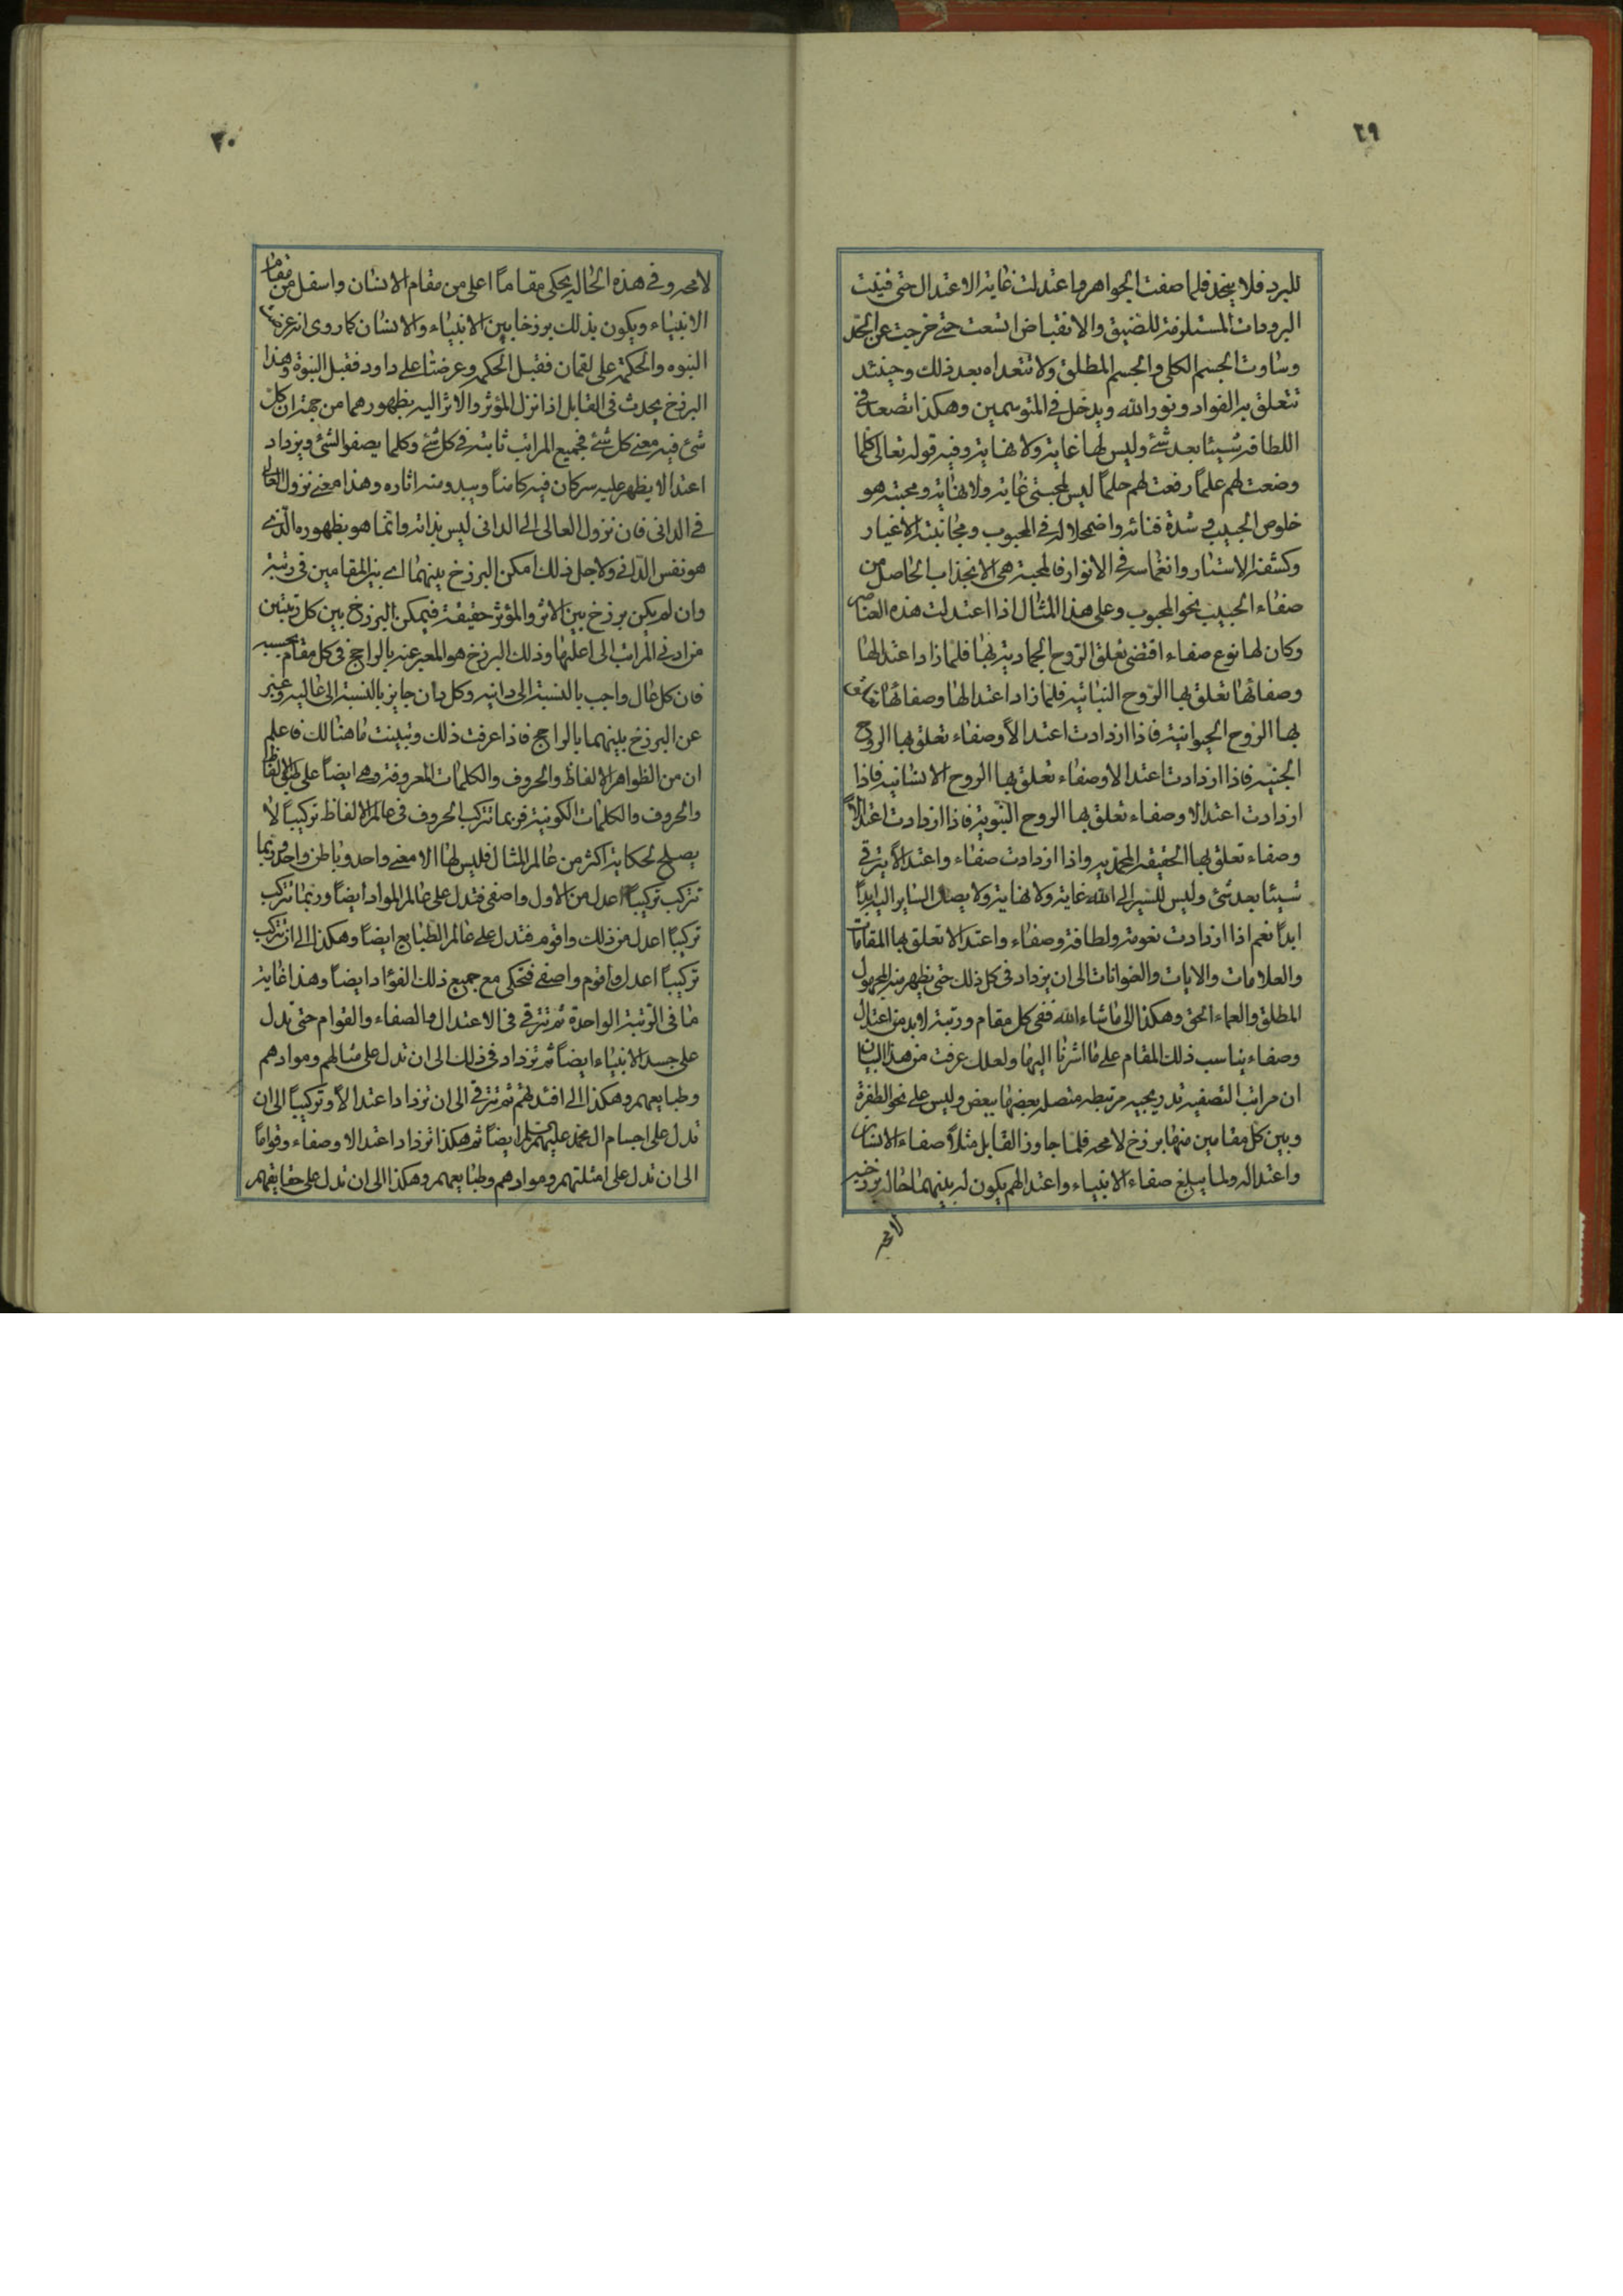 ٢٩
للبرد فلا ينجمد فلما صفت الجواهر واعتدلت غاية الاعتدال حتى فنيت
البرودات المستلزمة للضيق والانقباض اتسعت حتى خرجت عن الحد
وساوت الجسم الكلي والجسم المطلق ولا تتعداه بعد ذلك وحينئذ
تتعلق به الفواد ونور الله ويدخل في المتوسمين وهكذا تصعد في
اللطافة شيئا بعد شئ وليس لها غاية ولا نهاية وفيه قوله تعالى كلما
وضعت لهم علماً رفعت لهم حلماً ليس لمحبتي غاية ولا نهاية ومحبته هو
خلوص الحبيب في شدة فنائه واضمحلاله في المحبوب ومجانبته الاغيار
وكشفه الاستار وانغماسه في الانوار فالمحبة هي الانجذاب الحاصل من
صفاء الحبيب نحو المحبوب وعلى هذا المثال اذا اعتدلت هذه العناصر
وكان لها نوع صفاء اقتضى تعلق الروح الجمادية بها فلما زاد اعتدالها
وصفائها تعلق بها الروح النباتية فلما زاد اعتدالها وصفائها تعلق
بها الروح الحيوانية فاذا ازدادت اعتدالاً وصفاء تعلق بها الروح
الجنيه فاذا ازدادت اعتدالا وصفاء تعلق بها الروح الانسانيه فاذا
ازدادت اعتدالا وصفاء تعلق بها الروح النبوية فاذا ازدادت اعتدالاً
وصفاء تعلق بها الحقيقه المحمديه واذا ازدادت صفاء واعتدالاً يترقى
شيئا بعد شئ وليس للسير الى الله غاية ولا نهاية ولا يصل الساير اليه ابداً
ابداً نعم اذا ازدادت نعومة ولطافة وصفاء واعتدالا تعلق بها المقامات
والعلامات والايات والعنوانات الى ان يزداد في كل ذلك حتى يظهر منه المجهول
المطلق والعماء الحق وهكذا الى ما شاء الله ففي كل مقام ورتبة لابد من اعتدال
وصفاء يناسب ذلك المقام على ما اشرنا اليها ولعلك عرفت من هذا البيان
ان مراتب التصفيه تدريجيه مرتبطه متصله بعضها ببعض وليس على نحو الطفرة
وبين كل مقامين منها برزخ لا محه فلما جاوز القابل مثلاً صفاء الانسان
واعتداله ولما يبلغ صفاء الانبياء واعتدالهم يكون له بينهما حاله برزخيه
لا محه
٣٠
لا محه وفي هذه الحاله يحكي مقاماً اعلى من مقام الانسان واسفل من مقام
الانبياء ويكون بذلك برزخا بين الانبياء والانسان كما روى انه عرضت
النبوه والحكمة على لقمان فقبل الحكمه وعرضتا على داود فقبل النبوة وهذا
البرزخ يحدث في القابل اذا نزل المؤثر والاثر اليه بظهورهما من جهة ان كل
شئ فيه معنى كل شئ فجميع المراتب ثابته في كل شئ وكلما يصفو الشئ ويزداد
اعتدالا يظهر عليه سر كان فيه كامناً ويبدو منه اثاره وهذا معنى نزول العالي
في الداني فان نزول العالي الى الداني ليس بذاته وانما هو بظهوره الذي
هو نفس الداني ولاجل ذلك امكن البرزخ بينهما اي بين المقامين في رتبة
وان لم يكن برزخ بين الاثر والمؤثر حقيقة فيمكن البرزخ بين كل رتبتين
من ادنى المراتب الى اعليها وذلك البرزخ هو المعبر عنه بالراجح في كل مقام بحسبه
فان كل عال واجب بالنسبة الى دانيه وكل دان جايز بالنسبة الى عاليه وعبر
عن البرزخ بينهما بالراجح فاذا عرفت ذلك وتبينت ما هنالك فاعلم
ان من الظواهر الالفاظ والحروف والكلمات المعروفة وهي ايضاً على طبق الالفاظ
والحروف والكلمات الكونية فربما تتركب الحروف في عالم الالفاظ تركيباً لا
يصلح لحكاية اكثر من عالم المثال فليس لها الا معنى واحد وباطن واحد وربما
تتركب تركيباً اعدل من الاول واصفى فتدل على عالم المواد ايضاً وربما تتركب
تركيباً اعدل من ذلك واقوم فتدل على عالم الطبايع ايضاً وهكذا الى ان تتركب
تركيباً اعدل واقوم واصفى فتحكى مع جميع ذلك الفؤاد ايضاً وهذا غاية
ما في الرتبة الواحدة ثم تترقى في الاعتدال والصفاء والقوام حتى تدل
على جسد الانبياء ايضاً ثم تزداد في ذلك الى ان تدل على مثالهم وموادهم
وطبايعهم وهكذا الى افئدتهم ثم تترقى الى ان تزداد اعتدالاً وتركيباً الى ان
تدل على اجسام ال محمد عليهم السلم ايضاً ثم هكذا تزداد اعتدالا وصفاء وقواماً
الى ان تدل على امثلتهم وموادهم وطبايعهم وهكذا الى ان تدل على حقايقهم